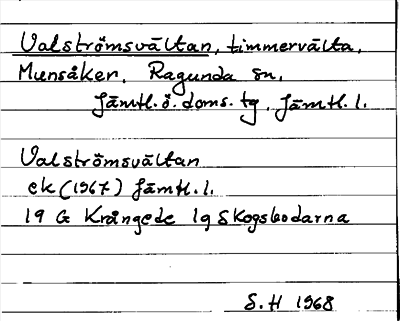 Valströmsvältan, timmervälta,
Munsåker, Ragunda sn,
Jämtl. ö. doms. tg, Jämtl. l.
Valströmsvältan
ek (1967) Jämtl. l.
19 G Krångede lg Skogsbodarna
S. H 1968